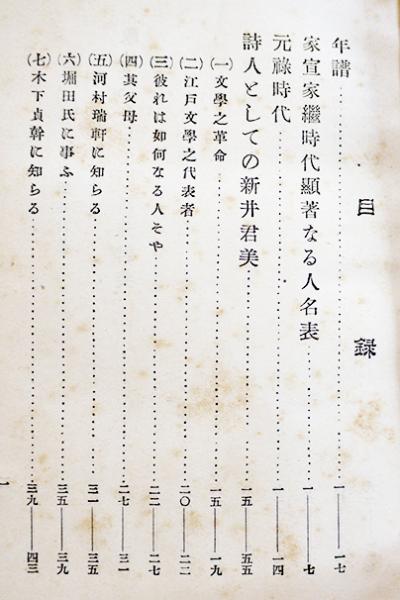 目録
年譜……一——一七
家宣家繼時代顯著なる人名表……一——七
元祿時代……一——一四
詩人としての新井君美……一五——五五
(一)文學之革命……一五——一九
(二)江戸文學之代表者……二〇——二二
(三)彼れは如何なる人そや……二二——二七
(四)其父母……二七——三一
(五)河村瑞軒に知らる……三一——三五
(六)堀田氏に事ふ……三五——三九
(七)木下貞幹に知らる……三九——四三
一